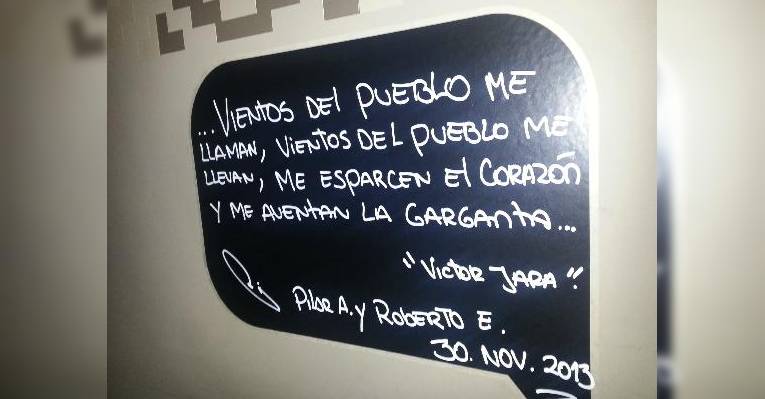 ...VIENTOS DEL PUEBLO ME
LLAMAN, VIENTOS DEL PUEBLO ME
LLEVAN, ME ESPARCEN El CORAZÓN
Y ME AVENTAN LA GARGANTA...
"VICTOR JARA".
PilAR A. y ROBERTO E.
30. NOV. 2013